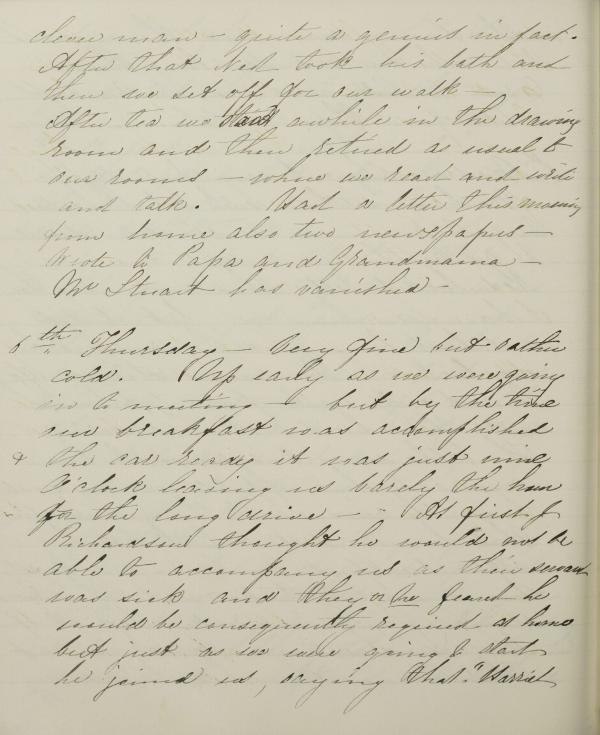 clever man - quite a genius in fact.
After that Ned took his bath and
then we set off for our walk -
After tea we staid awhile in the drawing
room and then retired as usual to
our rooms - where we read and write
and talk. Had a letter this morning
from home also two newspapers -
Wrote to Papa and Grandmama -
Mr Stuart has vanished -
6th Thursday - Very fine but rather
cold. Up early as we were going
in to meeting - but by the time
our breakfast was accomplished
& the car ready it was just nine
O'clock leaving us barely the hour
for the long drive - At first J
Richardson thought he would not be
able to accompany us as their servant
was sick and they or he feared he
would be consequently required at home
but just as we were going to start
he joined us, saying that "Harriet